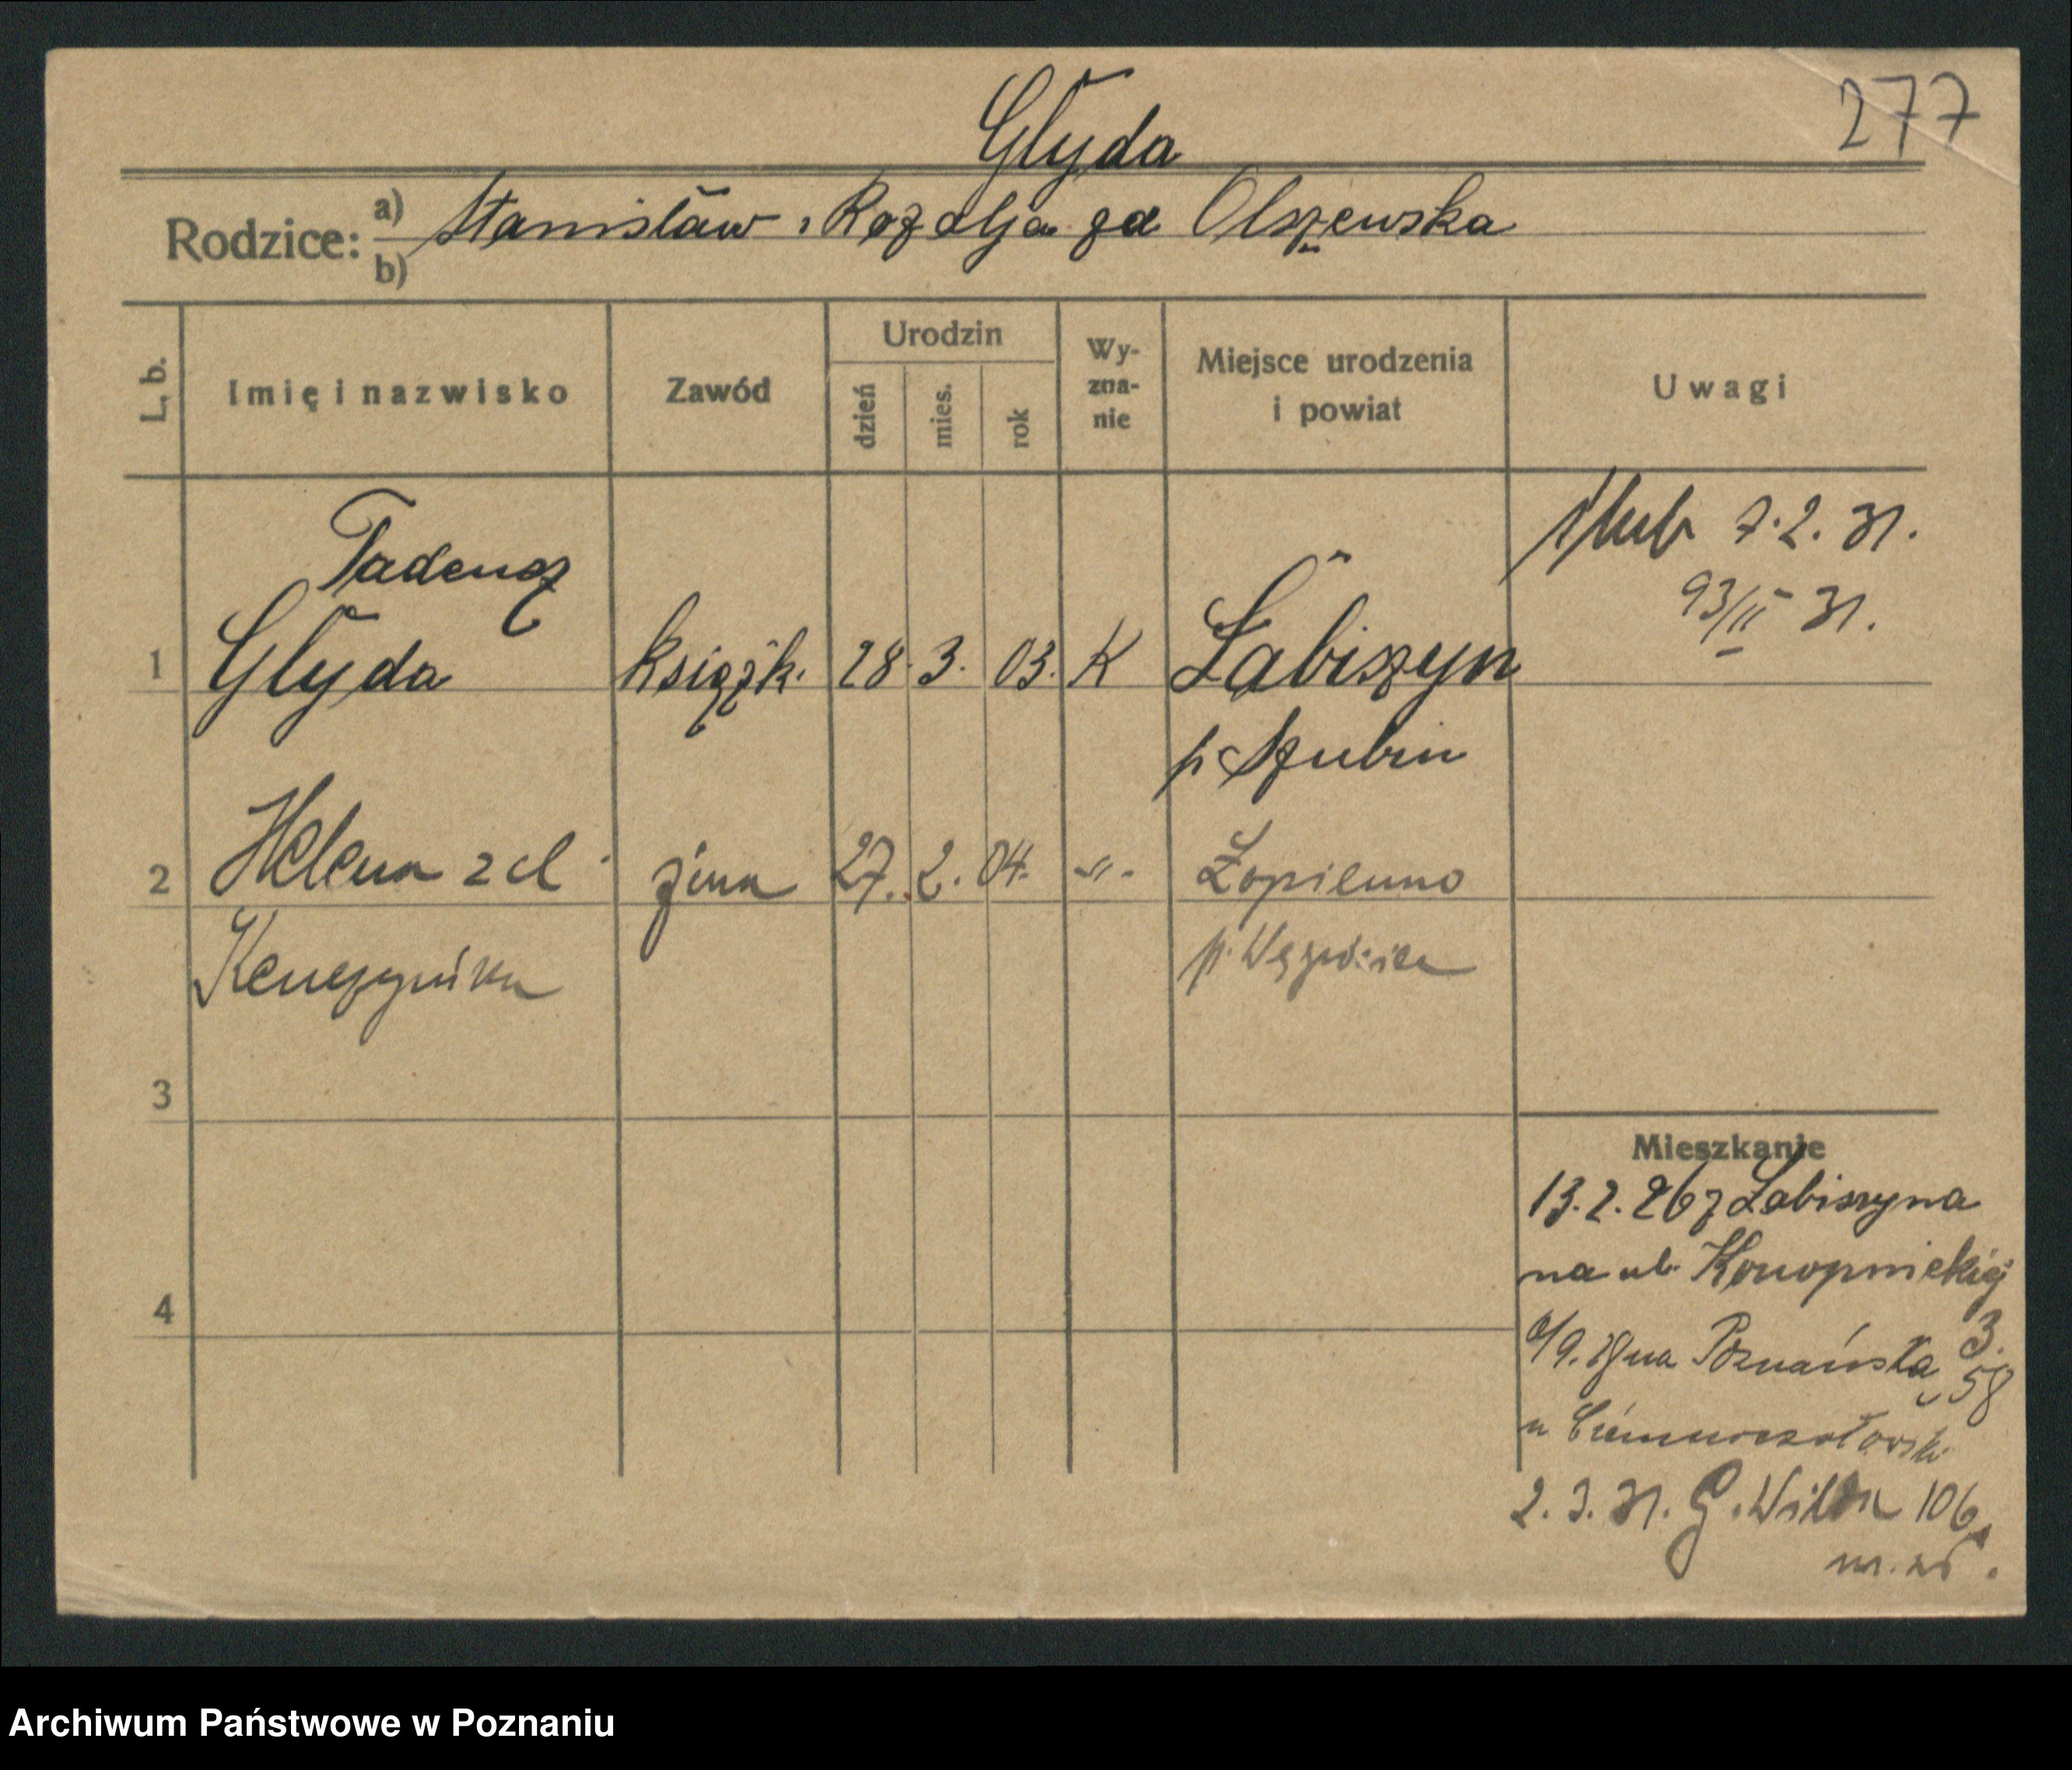 277
Głyda
Rodzice: a) Stanisław i Rozalja zd Olszewska
b)
L. b.
Imię i nazwisko
Zawód
Urodzin
dzień
mies.
rok
Wy-
zna-
nie
Miejsce urodzenia
i powiat
Uwagi
ślub 7.2.31.
93/II 31.
Tadeusz
1 Głyda książk. 28. 3. 03. K Łabiszyn
p Szubin
2 Helena zd żona 27. 2. 04. -"- Łopienno
p. Wągrówiec
3
4
Mieszkanie
13.2.26 z Łabiszyna
na ul. Konopnickiej
3.
na Poznańska 58
u
2.3.31. G. Wilda 106
Archiwum Państwowe w Poznaniu